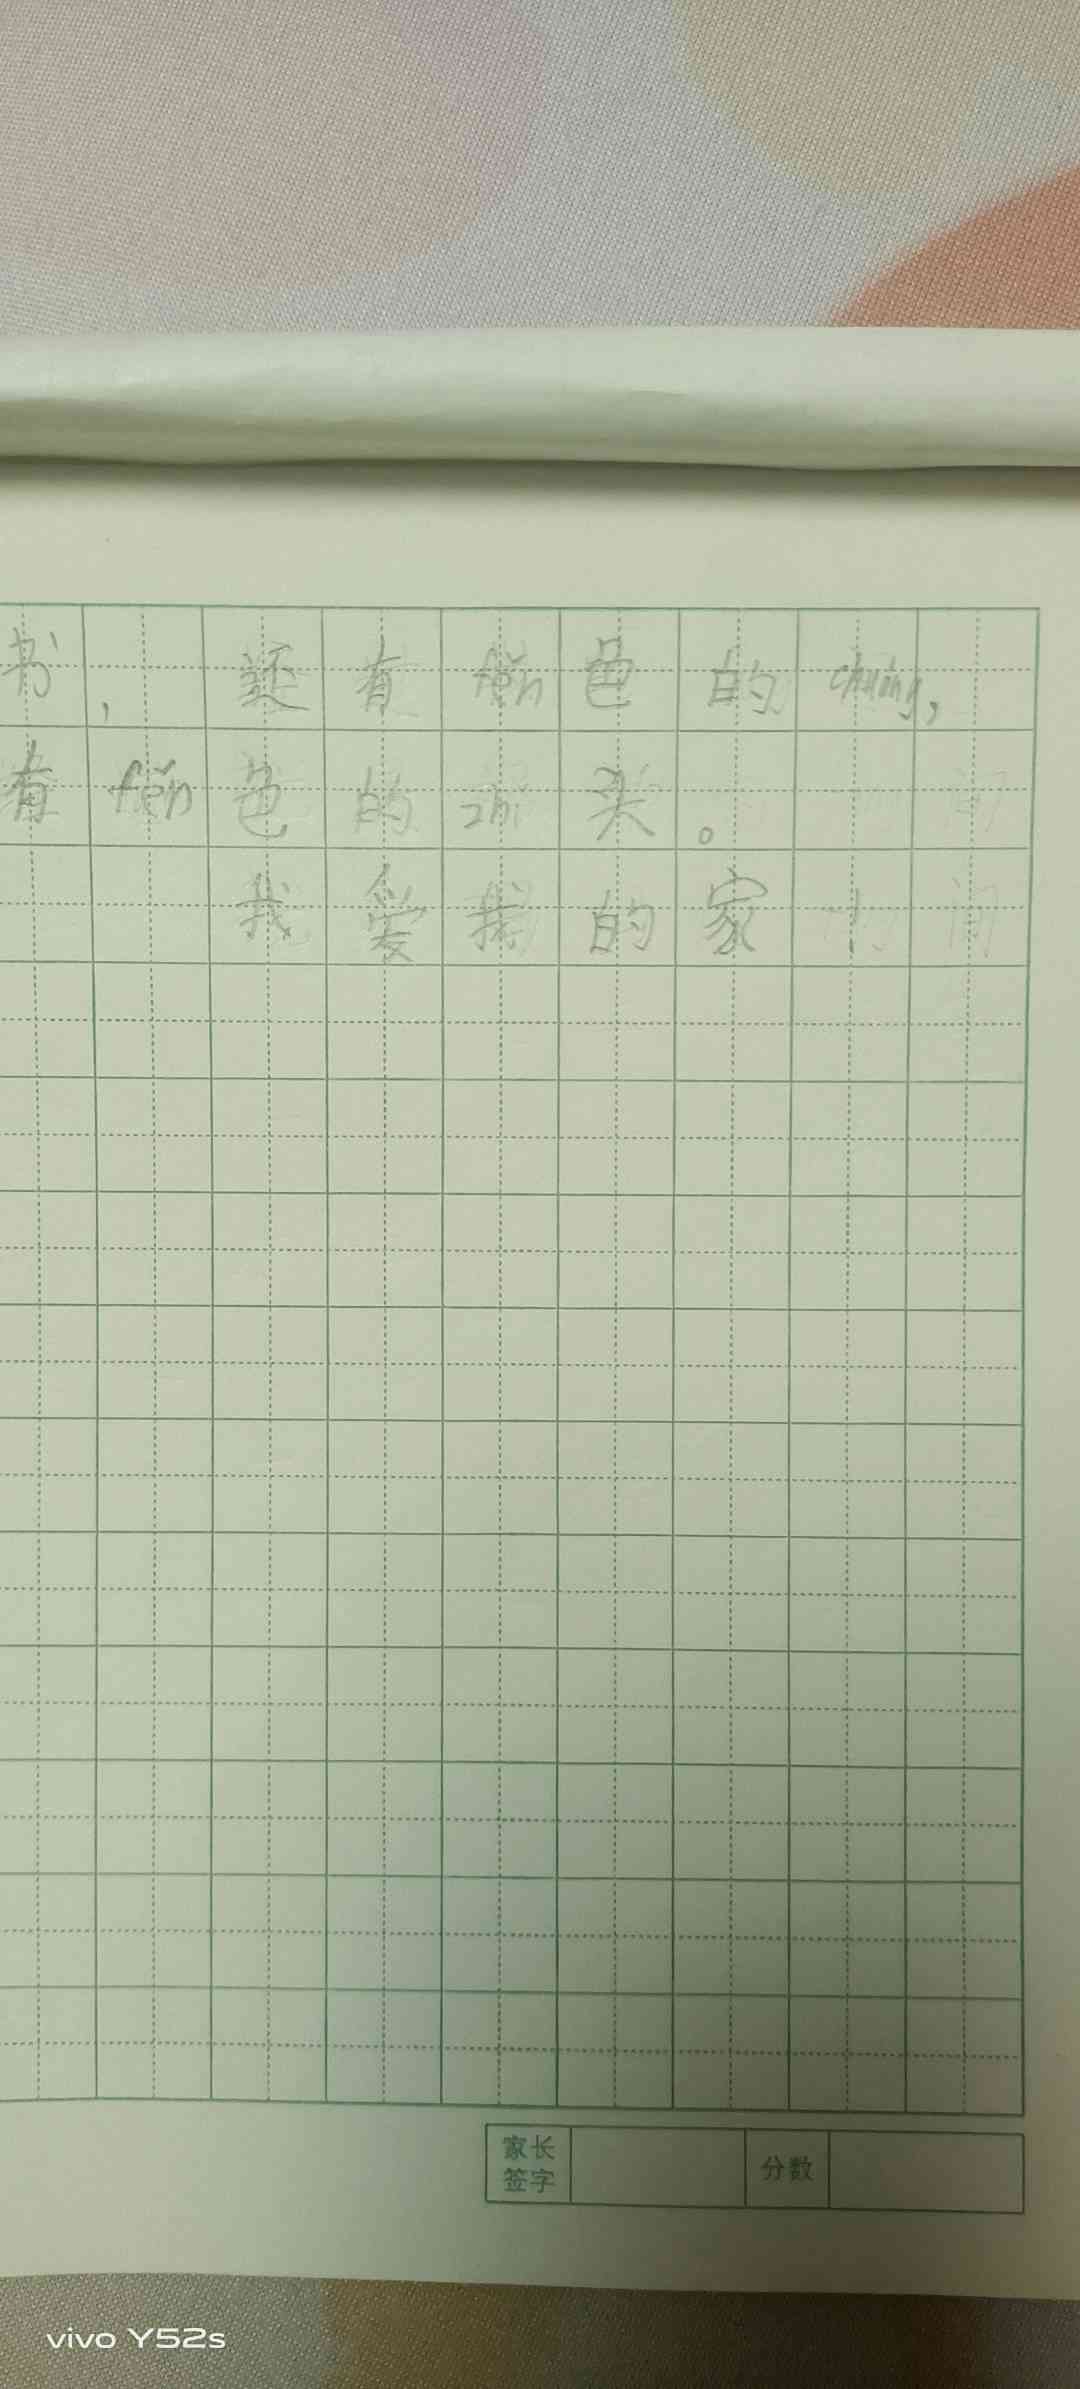 书，还有fěn色的chuáng，
有fěn色的zhěn头。
我爱我的家！
家长签字
分数
vivo Y52s